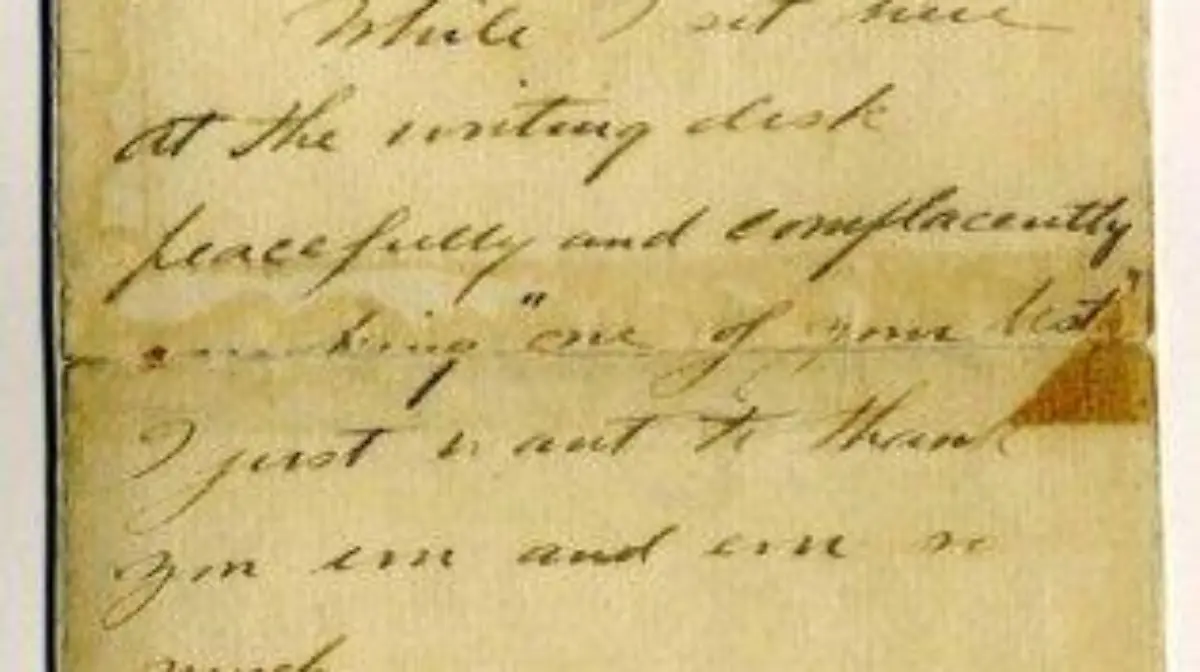 While I sit here
at the writing desk
peacefully and complacently
smoking "one of your best"
I just want to thank
you ever and ever so
much